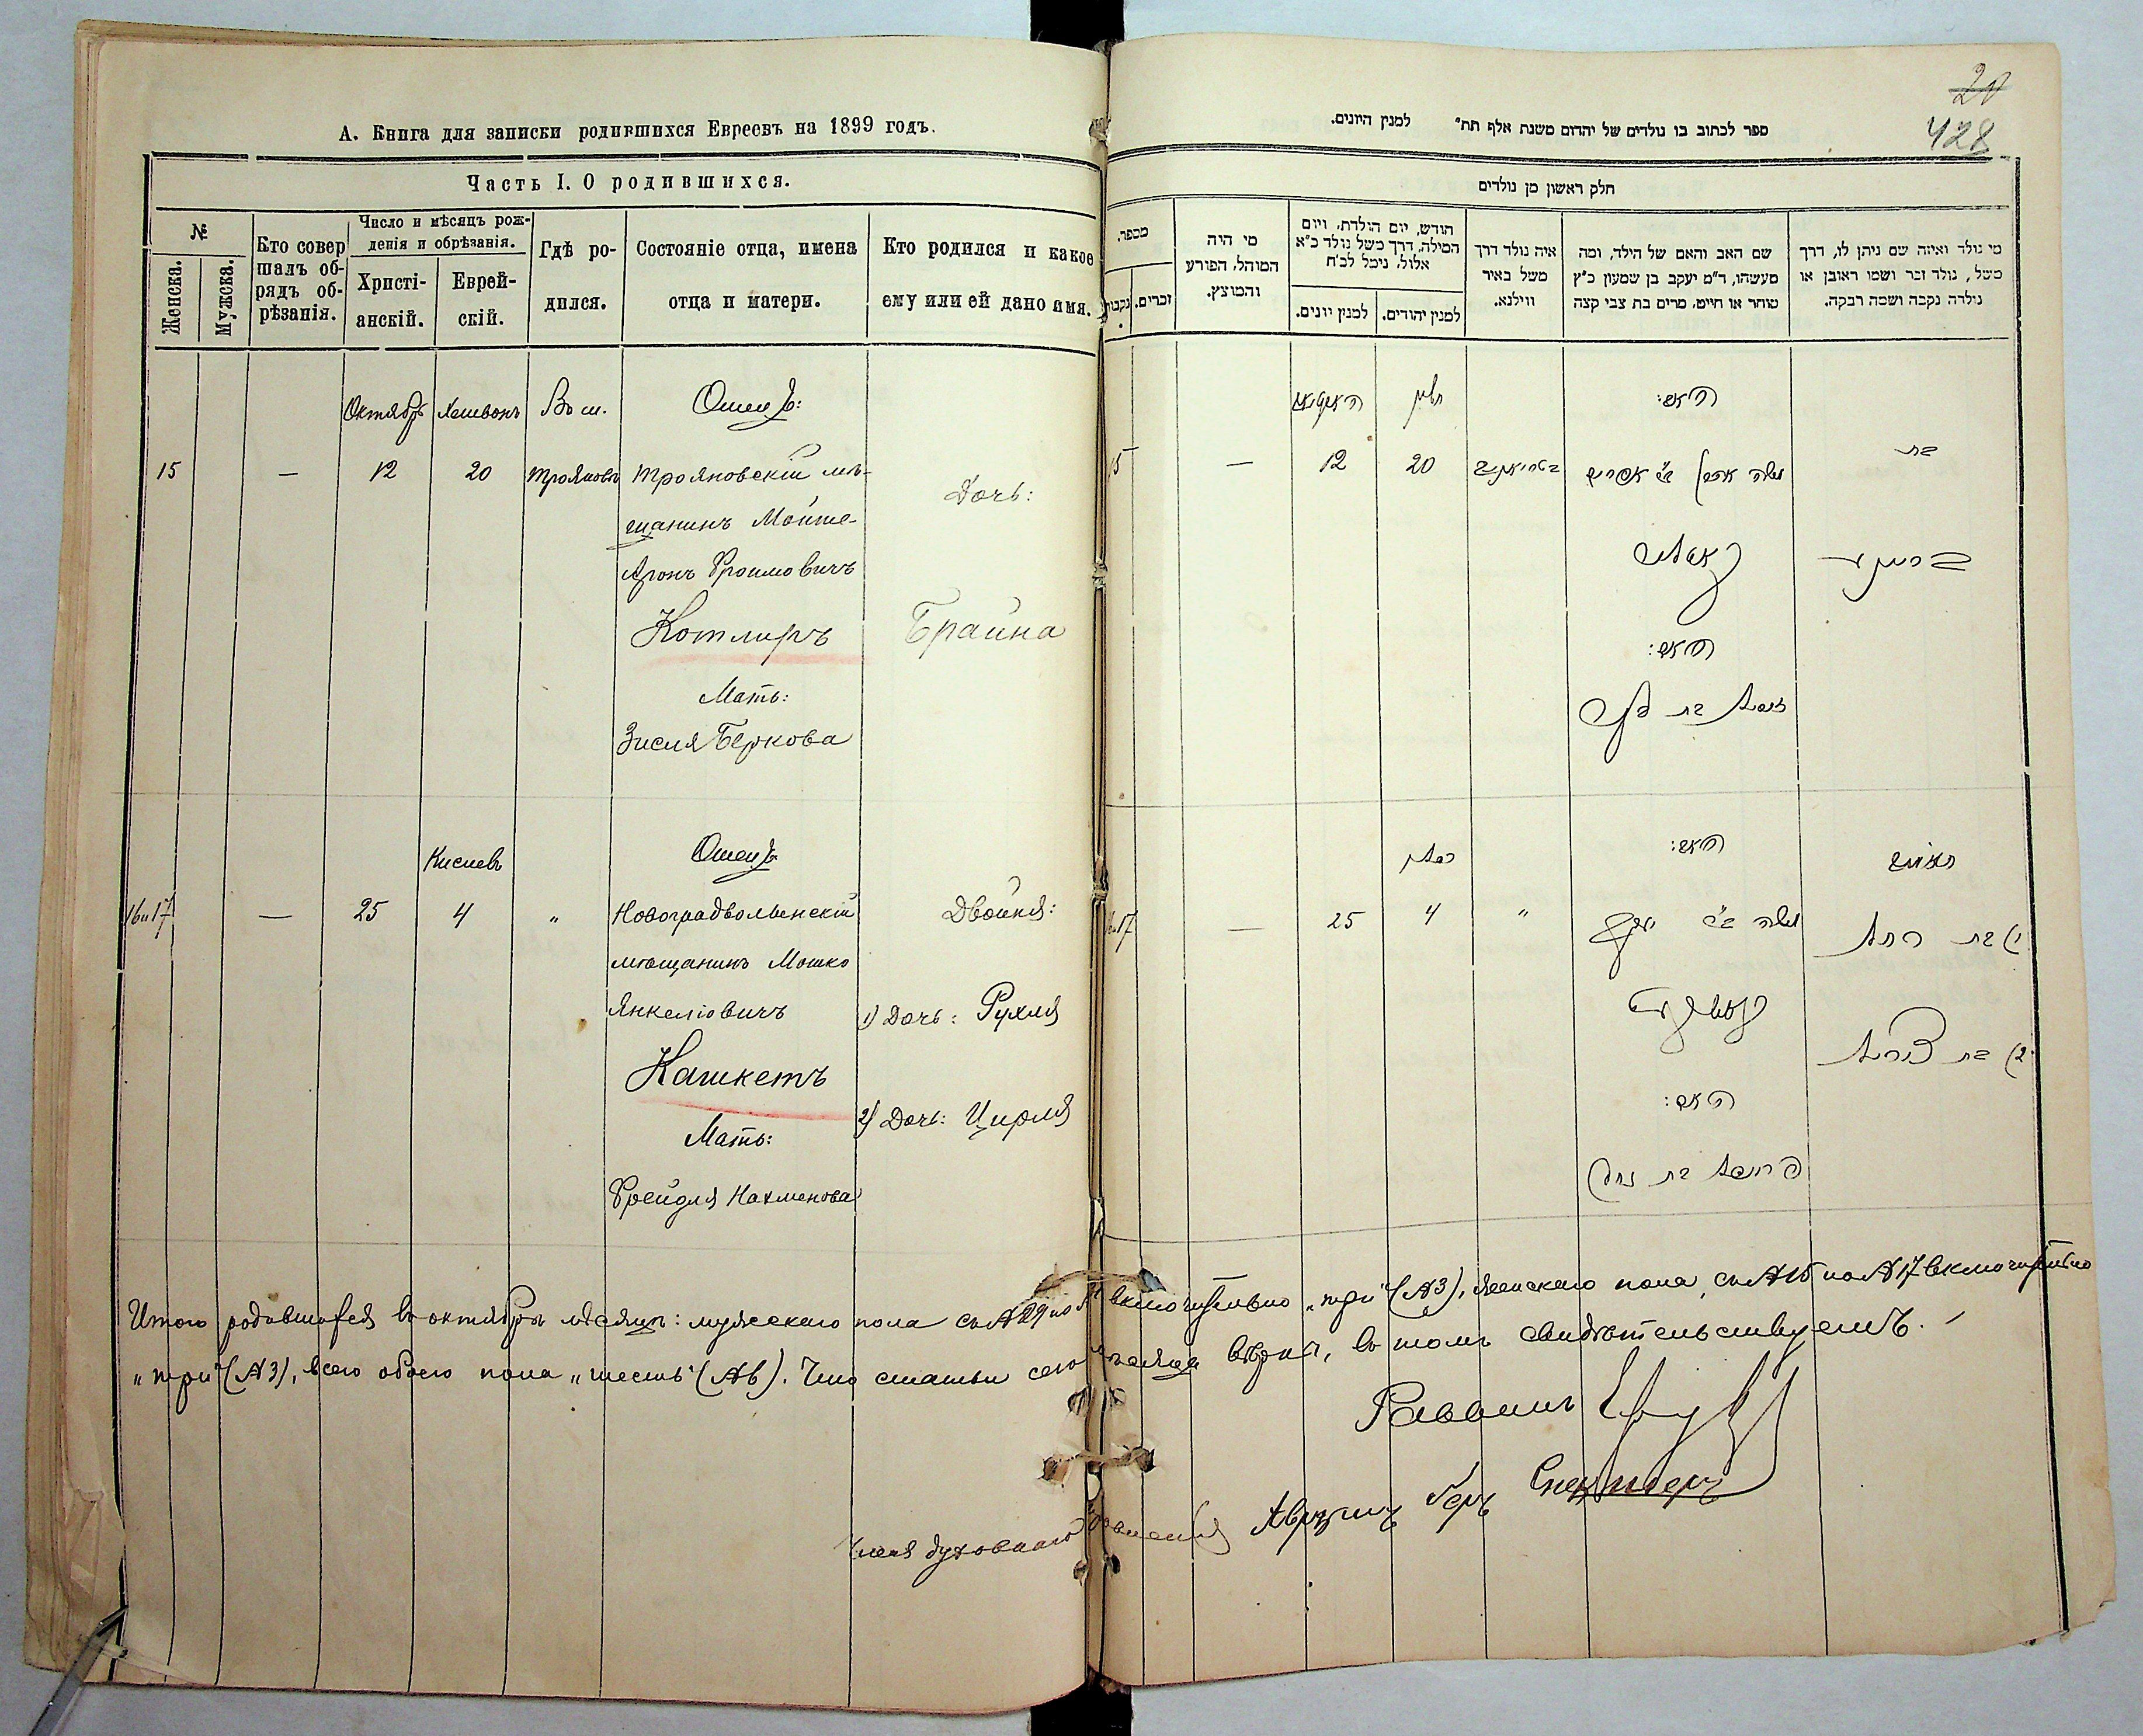 А. Книга для записки родившихся Евреевъ на 1899 годъ.
Часть I. О родившихся.
№
Женска.
Мужска.
Кто совер
шалъ об-
рядъ об-
рѣзанія.
Число и мѣсяцъ рож-
денія и обрѣзанія.
Христі-
анскій.
Еврей-
скій.
Гдѣ ро-
дился.
Состояніе отца, имена
отца и матери.
Кто родился и какое
ему или ей дано имя.
Октябрь Хешвонъ Въ м. Отецъ:
15 — 12 20 Трояновъ Трояновскій мѣ-
щанинъ Мойше-
Аронъ Фроимовичъ
Котляръ
Мать:
Зисля Беркова
Дочь:
Брайна
Кислевъ Отецъ
16 и 17 — 25 4 „ Новоградволынскій
мѣщанинъ Мошко
Янкеліовичъ
Кашкетъ
Мать:
Фрейдля Нахменова
Двойня:
1) Дочь: Рухля
2) Дочь: Цирля
20
428
ספר לכתוב בו נולדים של יהדום משנת אלף תת״ למנין היונים.
חלק ראשון מן נולדים
מספר.
נקבות
זכרים.
מי היה
המוהל, הפורע
והמוצץ.
חודש, יום הולדת, ויום
המילה, דרך משל נולד כ״א
אלול, נימל לכ״ח
למנין יונים.
למנין יהודים.
איה נולד דרך
משל באיר
ווילנא.
שם האב והאם של הילד, ומה
מעשהו, ד״מ יעקב בן שמעון כ״ץ
סוחר או חייט, מרים בת צבי קצה
מי נולד ואיזה שם ניתן לו, דרך
משל, נולד זכר ושמו ראובן או
נולדה נקבה ושמה רבקה.
חשון
האב:
15 — 12 20
משה אהרן ב״ר אפרים
בת
קאטליר
בריינא
האם:
זיסל בת
כסלו
האב:
תאומים
16 и 17 — 25 4 „
משה ב״ר יעקב
1) בת רחל
קאשקעט
2) בת צירל
האם:
פריידל בת נחמן
Итого родившихся въ октябрѣ мѣсяцѣ: мужескаго пола съ № 29 по № включительно „три“ (№ 3), женскаго пола, съ № 15 по № 17 включительно
„три“ (№ 3), всего обоего пола „шесть“ (№ 6). Что статьи сего мѣсяца вѣрны, въ томъ свидѣтельствуемъ.
Раввинъ
Члены духовнаго правленія